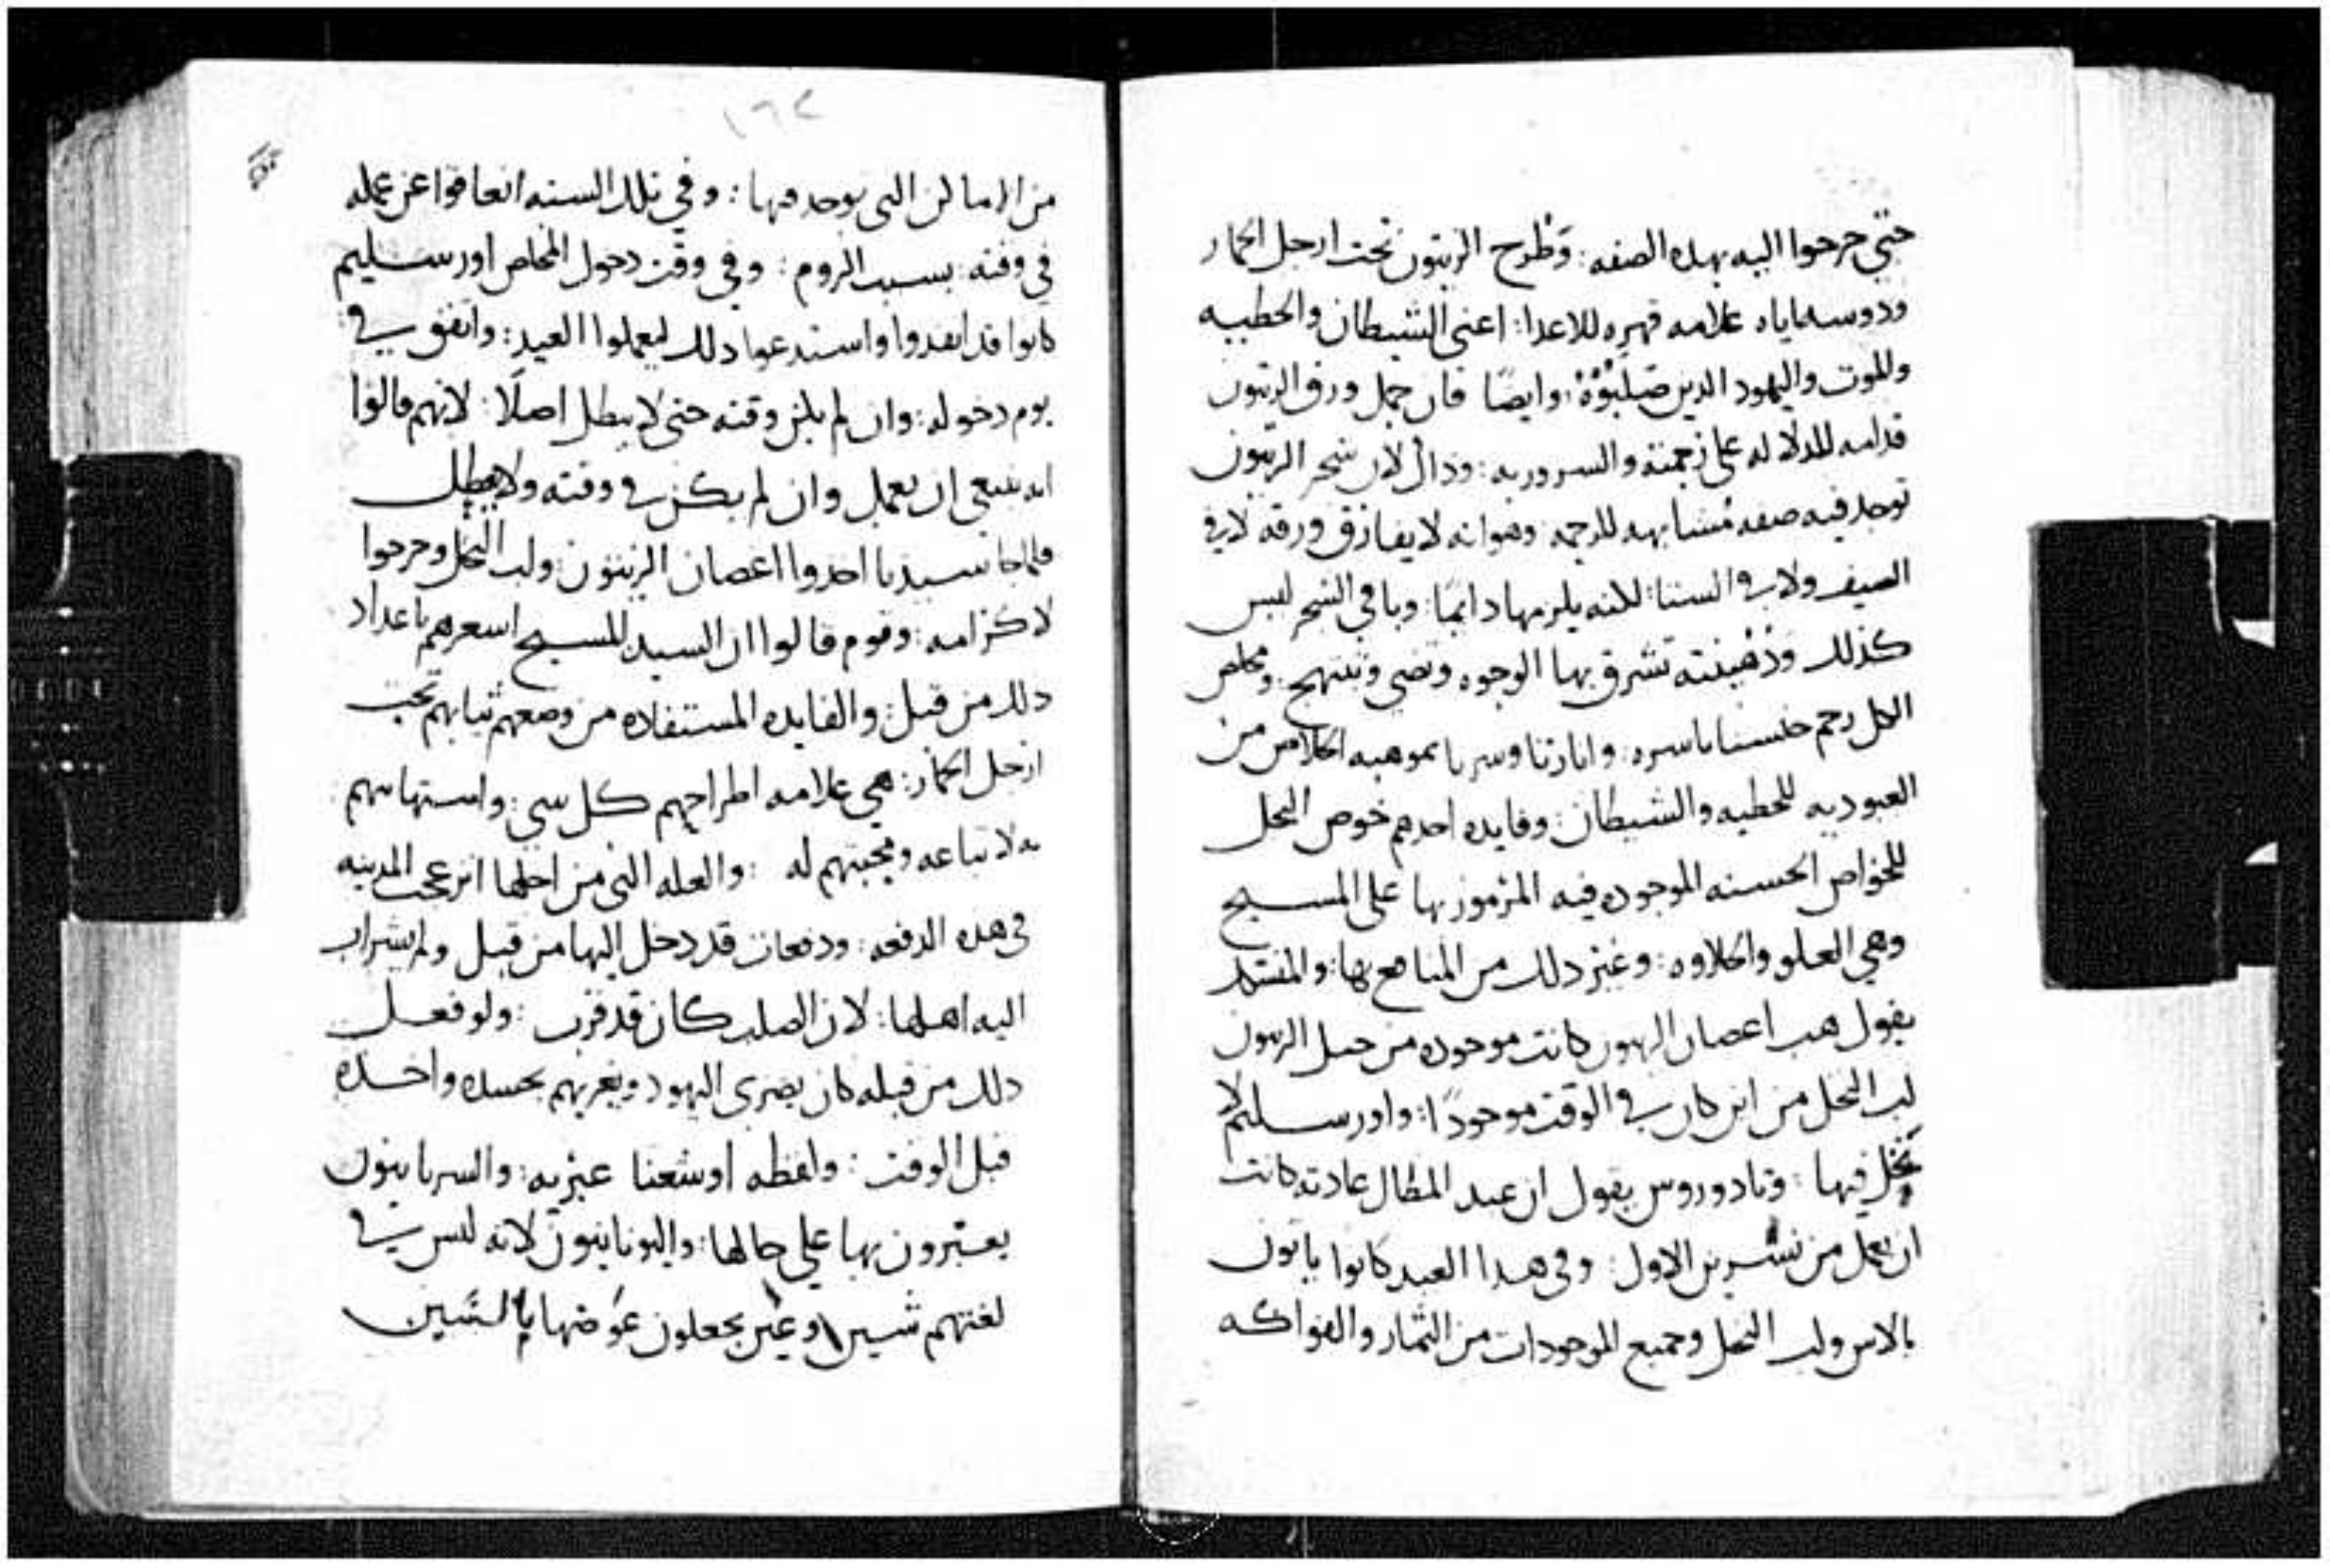 حتي خرجوا اليه بهده الصفه: وَطرح الزيتون تحت ارجل الحمار
ودوسه اياه علامه قهره للاعدا: اعني الشيطان والخطيه
والموت واليهود الدين صَلبُوْهُ: وايضًا فان حمل ورق الزيتون
قدامه للدلاله على رحمته والسرور به: وداك لان شجر الزيتون
توجد فيه صفه مُشابهه للرحمه وهوانه لا يفارق ورقه لا في
الصيف ولا في الستا: لانه يلزمها دايمًا: وباقي الشجر ليس
كذلك وَدُهْنِيَته تشرق بها الوجوه وتضي وتبتهج: ومخلص
الكل رحم جنسنا باسره: وانارنا وسرنا بموهبه الخلاص من
العبوديه للخطيه والشيطان: وفايده اخدهم خوص النخل
للخواص الحسنه الموجوده فيه المرموز بها على المسيح
وهي العلو والحلاوه: وغير دلك من المنافع بها: والمفتد
يقول هب اعصان الزيتون كانت موجوده من جبل الزيتون
لب النخل من اين كان في الوقت موجودًا: واورسليم لا
نخل فيها: وتادوروس يقول ان عيد المظال عادته كانت
ان يعمل من تشرين الاول: وفي هدا العيد كانوا ياتون
بالاس ولب النخل وجميع الموجودات من الثمار والفواكه
١٦٢
من الاماكن التى توجد فيها: وفي تلك السنه انعاقوا عن عمله
في وقته: بسبب الروم: وفي وقت دخول المخلص اورسليم
كانوا قد انفدوا واستدعوا دلك ليعملوا العيد: واتفق في
يوم دخوله: وان لم يكن وقته حتى لا يبطل اصلًا: لانهم قالوا
انه ينبغي ان يعمل وان لم يكن في وقته ولا يبطل
فلما جا سيدنا اخدوا اعصان الزيتون: ولب النخل وخرجوا
لاكرامه: وقوم قالوا ان السيد المسيح اسعرهم باعداد
دلك من قبل: والفايده المستفاده من وضعهم ثيابهم تحت
ارجل الحمار: هي علامه اطراحهم كل سي: واستهانتهم
به لاتباعه ومحبتهم له: والعله التي من اجلها انزعجت المدينه
في هده الدفعه: ودفعات قد دخل اليها من قبل ولم يشراب
اليه اهلها: لان الصلب كان قد قرب: ولو فعل
دلك من قبله كان يضرى اليهود ويغريهم بحسده واخده
قبل الوقت: ولفظه اوشعنا عبريه: والسريانيون
يعبرون بها على حالها: واليونانيون لانه ليس في
لغتهم شين ولا عين يجعلون عوَضها بالسين